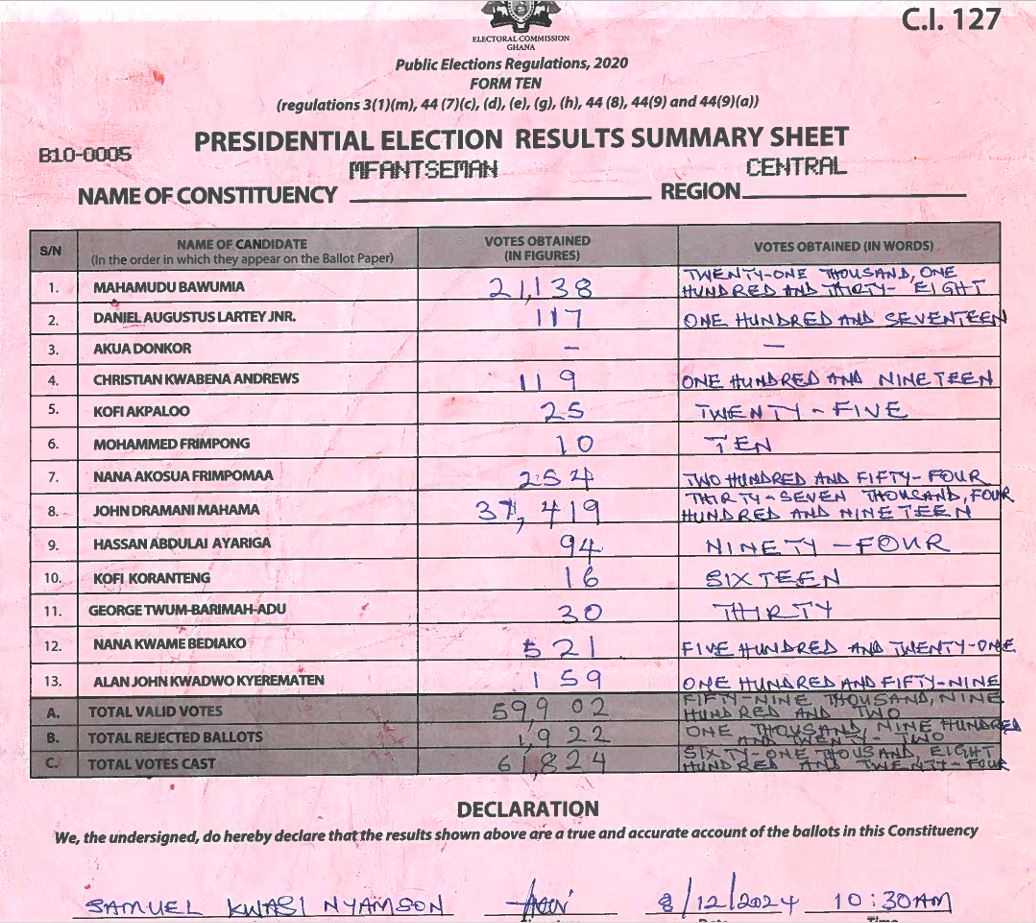 C.I. 127
ELECTORAL COMMISSION
GHANA
Public Elections Regulations, 2020
FORM TEN
(regulations 3(1)(m), 44 (7)(c), (d), (e), (g), (h), 44 (8), 44(9) and 44(9)(a))
PRESIDENTIAL ELECTION RESULTS SUMMARY SHEET
B10-0005
MFANTSEMAN CENTRAL
NAME OF CONSTITUENCY REGION
S/N NAME OF CANDIDATE (In the order in which they appear on the Ballot Paper) VOTES OBTAINED (IN FIGURES) VOTES OBTAINED (IN WORDS)
1. MAHAMUDU BAWUMIA 21,138 TWENTY-ONE THOUSAND, ONE HUNDRED AND THIRTY-EIGHT
2. DANIEL AUGUSTUS LARTEY JNR. 117 ONE HUNDRED AND SEVENTEEN
3. AKUA DONKOR – –
4. CHRISTIAN KWABENA ANDREWS 119 ONE HUNDRED AND NINETEEN
5. KOFI AKPALOO 25 TWENTY-FIVE
6. MOHAMMED FRIMPONG 10 TEN
7. NANA AKOSUA FRIMPOMAA 254 TWO HUNDRED AND FIFTY-FOUR
8. JOHN DRAMANI MAHAMA 37,419 THIRTY-SEVEN THOUSAND, FOUR HUNDRED AND NINETEEN
9. HASSAN ABDULAI AYARIGA 94 NINETY-FOUR
10. KOFI KORANTENG 16 SIXTEEN
11. GEORGE TWUM-BARIMAH-ADU 30 THIRTY
12. NANA KWAME BEDIAKO 521 FIVE HUNDRED AND TWENTY-ONE
13. ALAN JOHN KWADWO KYEREMATEN 159 ONE HUNDRED AND FIFTY-NINE
A. TOTAL VALID VOTES 59,902 FIFTY-NINE THOUSAND, NINE HUNDRED AND TWO
B. TOTAL REJECTED BALLOTS 1,922 ONE THOUSAND, NINE HUNDRED AND TWENTY-TWO
C. TOTAL VOTES CAST 61,824 SIXTY-ONE THOUSAND EIGHT HUNDRED AND TWENTY-FOUR
DECLARATION
We, the undersigned, do hereby declare that the results shown above are a true and accurate account of the ballots in this Constituency
SAMUEL KWASI NYAMSON 8/12/2024 10:30AM